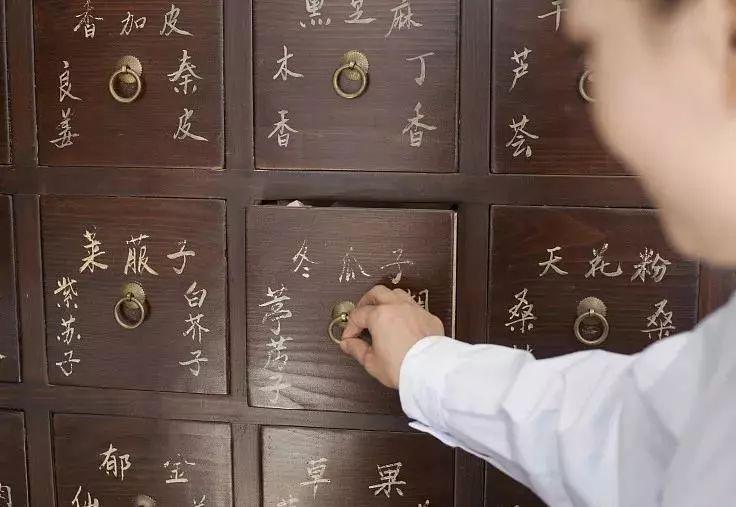 香加皮
良姜
秦皮
黑
麻
木香
丁香
芦荟
莱服子
紫苏子
白芥子
冬瓜子
葶苈子
天花粉
桑
桑
郁金
草果